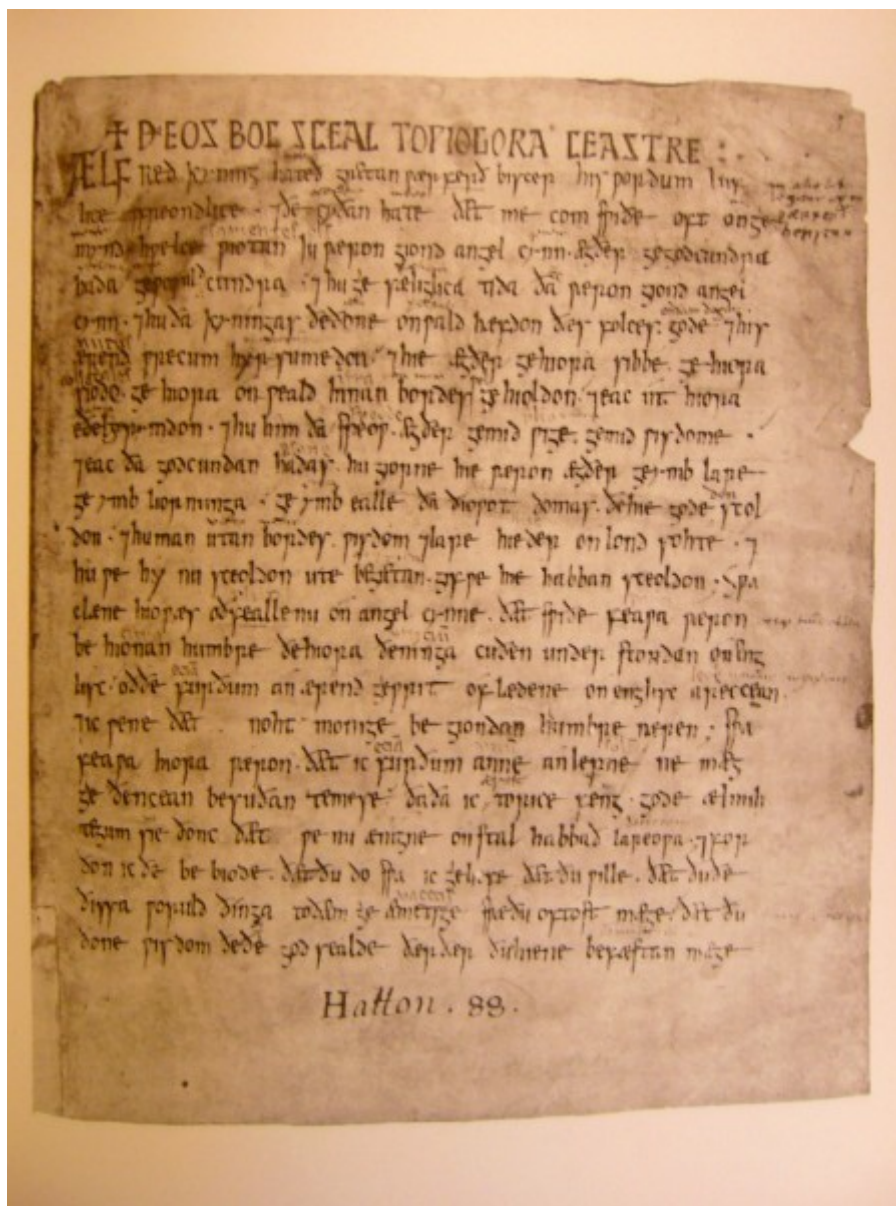 ✝ ÐEOS BOC SCEAL TOǷIOGORA CEASTRE
ÆLFRED kyning hateð gretan ƿærferð biscep his ƿordum luf
lice ⁊ freondlice · ⁊ðe cyðan hate ðæt me com sƿiðe oft onge
mynd hƿelce ƿiotan iu ƿæron giond angel cynn · ægðer gegodcundra
hada geƿoruld cundra · ⁊hu gesæliglica tida ða ƿæron giond angel
cynn · ⁊huða kyningas ðeðone onƿald hæfdon ðæs folces gode ⁊his
ærend ƿrecum hyrsumedon · ⁊hie ægðer gehiora sibbe · gehiora
siodo · ge hiora on ƿeald innan bordes gehioldon · ⁊eac ut hiora
eðelrymdon · ⁊hu him ða speoƿ · ægðer gemid ƿige · gemid ƿisdome ·
⁊eac ða godcundan hadas · hu giorne hie ƿæron ægðer geymb lare
ge ymb liornunga · ge ymb ealle ða ðioƿot domas · ðehie gode scol
don · ⁊human utan bordes · ƿisdom ⁊lare hieder on lond sohte · ⁊
hu ƿe hy nu sceoldon ute begietan · gif ƿe hie habban sceoldon · Sƿa
clæne hio ƿæs oðfeallenu on angel cynne · ðæt sƿiðe feaƿa ƿæron
be hionan humbre ðehiora ðeninga cuðen under stondan on eng
lisc · oððe furðum an ærend geƿrit of lædene on englisc areccean
⁊ic ƿene ðæt noht monige be giondan humbre næren · sƿa
feaƿa hiora ƿæron · ðæt ic furðum anne anlepne ne mæg
ge ðencean besuðan temese · ðaða ic torice feng · gode ælmih
tegum sie ðonc ðæt ƿe nu ænigne onstal habbað lareoƿa · ⁊for
ðon ic ðe be biode · ðæt ðu do sƿa ic geliefe ðæt ðu ƿille · ðæt ðuðe
ðissa ƿoruld ðinga toðæm ge æmetige sƿæðu oftost mæge · ðæt ðu
ðone ƿisdom ðeðe god sealde ðærðær ðuhiene befæstan mæge
Hatton · 88 ·